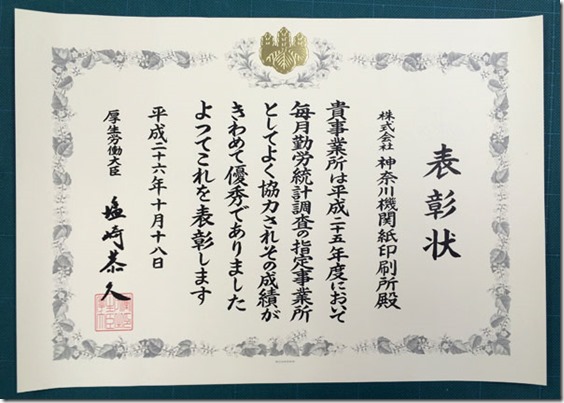 表彰状
株式会社 神奈川機関紙印刷所殿
貴事業所は平成二十五年度において
毎月勤労統計調査の指定事業所
としてよく協力されその成績が
きわめて優秀でありました
よつてこれを表彰します
平成二十六年十月十八日
厚生労働大臣 塩崎恭久